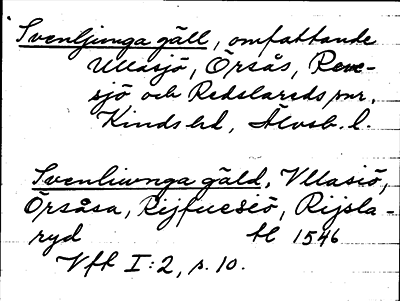 Svenljunga gäll, omfattande
Ullasjö, Örsås, Reve-
sjö och Redslareds snr,
Kinds hd, Älvsb. l.
Svenliwnga gäld, Vllasiö,
Örsåsa, Rijfuesiö, Rijsla-
ryd hl 1546
Vfh I:2, s. 10.